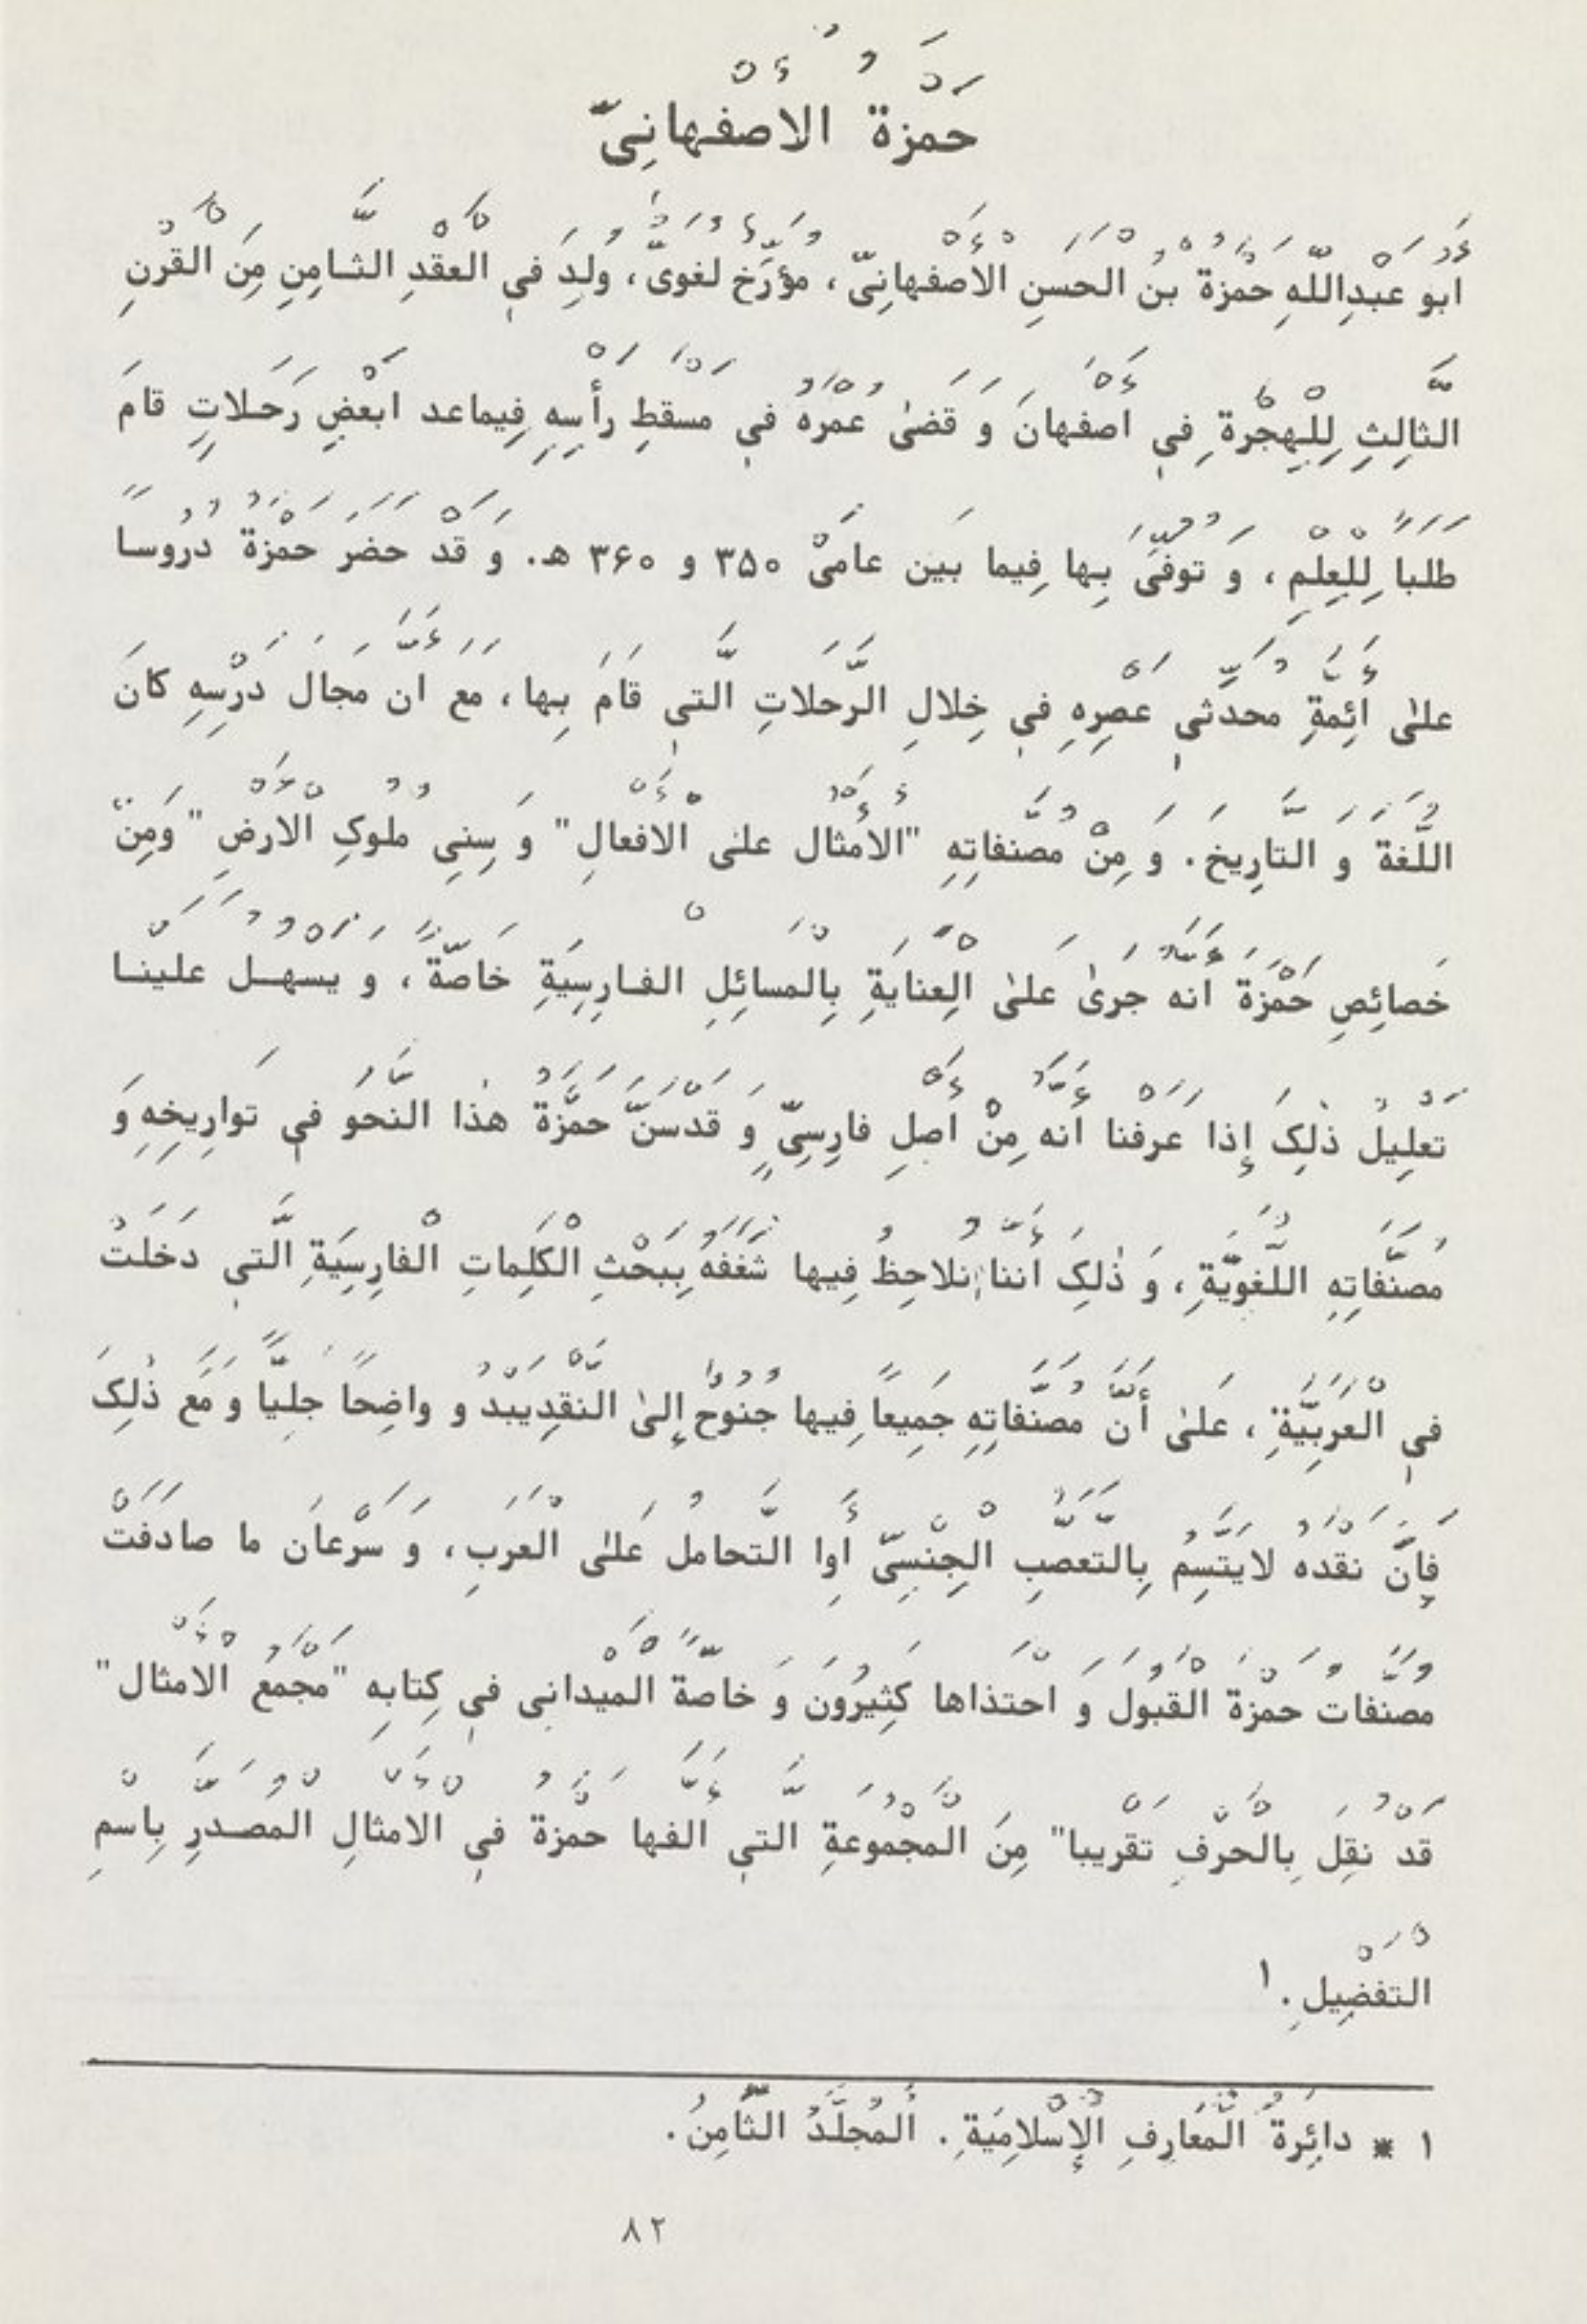 حمزة الاصفهانِیّ
ابو عبدِاللّهِ حمزة بن الحسنِ الاصفهانِیّ ، مؤرّخ لغویّ ، ولِدَ فی العقدِ الثامِنِ مِن القرنِ
الثالِثِ لِلهِجرة فِی اصفهانَ وَ قضیٰ عمره فی مسقطِ رأسِهِ فِیماعد ابعضِ رَحلاتٍ قامَ
طلبا لِلعِلمِ ، وَ توفیَ بِها فِیما بَین عامَیْ ۳۵۰ و ۳۶۰ هـ. وَ قد حضرَ حمزة دروسا
علیٰ أئِمةِ محدثی عصرِهِ فی خِلالِ الرّحلاتِ التی قامَ بِها ، مع ان مجالَ درسِهِ کانَ
اللّغة و التارِیخَ . وَ مِنْ مصنفاتِهِ "الامثال علی الافعالِ" وَ سِنِی ملوکِ الارضِ " وَمِن
خَصائِصِ حَمزة انه جریٰ علیٰ العِنایةِ بِالمسائِلِ الفارِسِیَةِ خاصّةً ، و یسهل علینا
تعلِیلُ ذٰلِکَ إِذا عرفنا انه مِنْ اصلِ فارِسِیّ وَ قدسنّ حمزة هذا النحوَ فی تواریخِهِ وَ
مُصنّفاتِهِ اللّغویّةِ ، وَ ذٰلِکَ اننا نلاحِظُ فِیها شغفهُ بِبَحْثِ الْکَلِماتِ الْفارِسِیَةِ الّتی دَخلتْ
فی العربِیّةِ ، عَلیٰ أنّ مصنفاتِهِ جَمِیعاً فِیها جنوح إِلیٰ النقدِیبد و واضِحاً جلِیّاً و مَع ذٰلِکَ
فإنّ نقده لایتسِمُ بِالتعصبِ الجِنسِیّ أوِا التحاملُ عَلیٰ العربِ ، وَ سرعانَ ما صادفتْ
مصنّفات حمزة القبول وَ احتذاها کَثِیرُونَ وَ خاصّة المیدانی فی کِتابِهِ "مجمع الامثال"
قدْ نقِلَ بِالحرفِ تقریبا" مِنَ المجموعةِ التی الفها حمزة فی الامثالِ المصدرِ بِاسمِ
التفضِیلِ . ۱
۱ * دائِرة المَعارِفِ الإسلامِیَةِ . المُجلّدُ الثّامِنُ .
۸۲